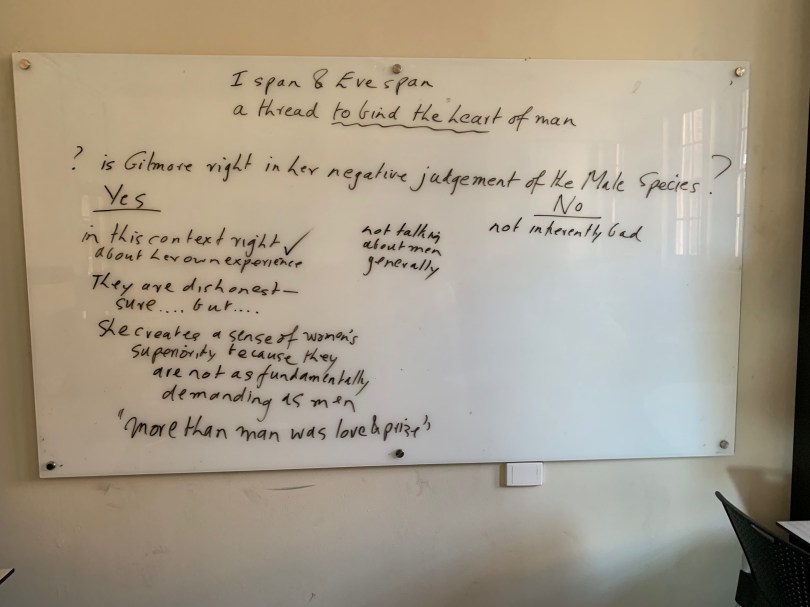 I span & Eve span
a thread to bind the heart of man
? is Gilmore right in her negative judgement of the Male Species ?
Yes
in this context right ✓
about her own experience
They are dishonest —
sure .... but ....
She creates a sense of women's
superiority because they
are not as fundamentally
demanding as men
"more than man was love & prize"
not talking
about men
generally
No
not inherently bad